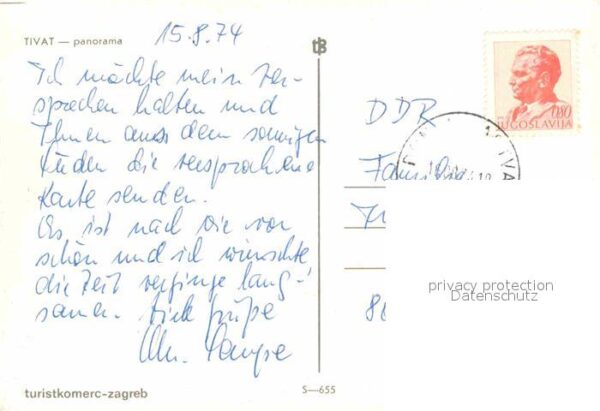 TIVAT — panorama
15.8.74
Ich möchte mein Ver-
sprechen halten und
Ihnen aus dem sonnigen
Süden die versprochene
Karte senden.
Es ist nach wie vor
schön und ich wünschte
die Zeit verginge lang-
samer. Viele Grüße
turistkomerc-zagreb
S—655
tB
DDR
Familie
0.80
JUGOSLAVIJA
TIVA
privacy protection
Datenschutz